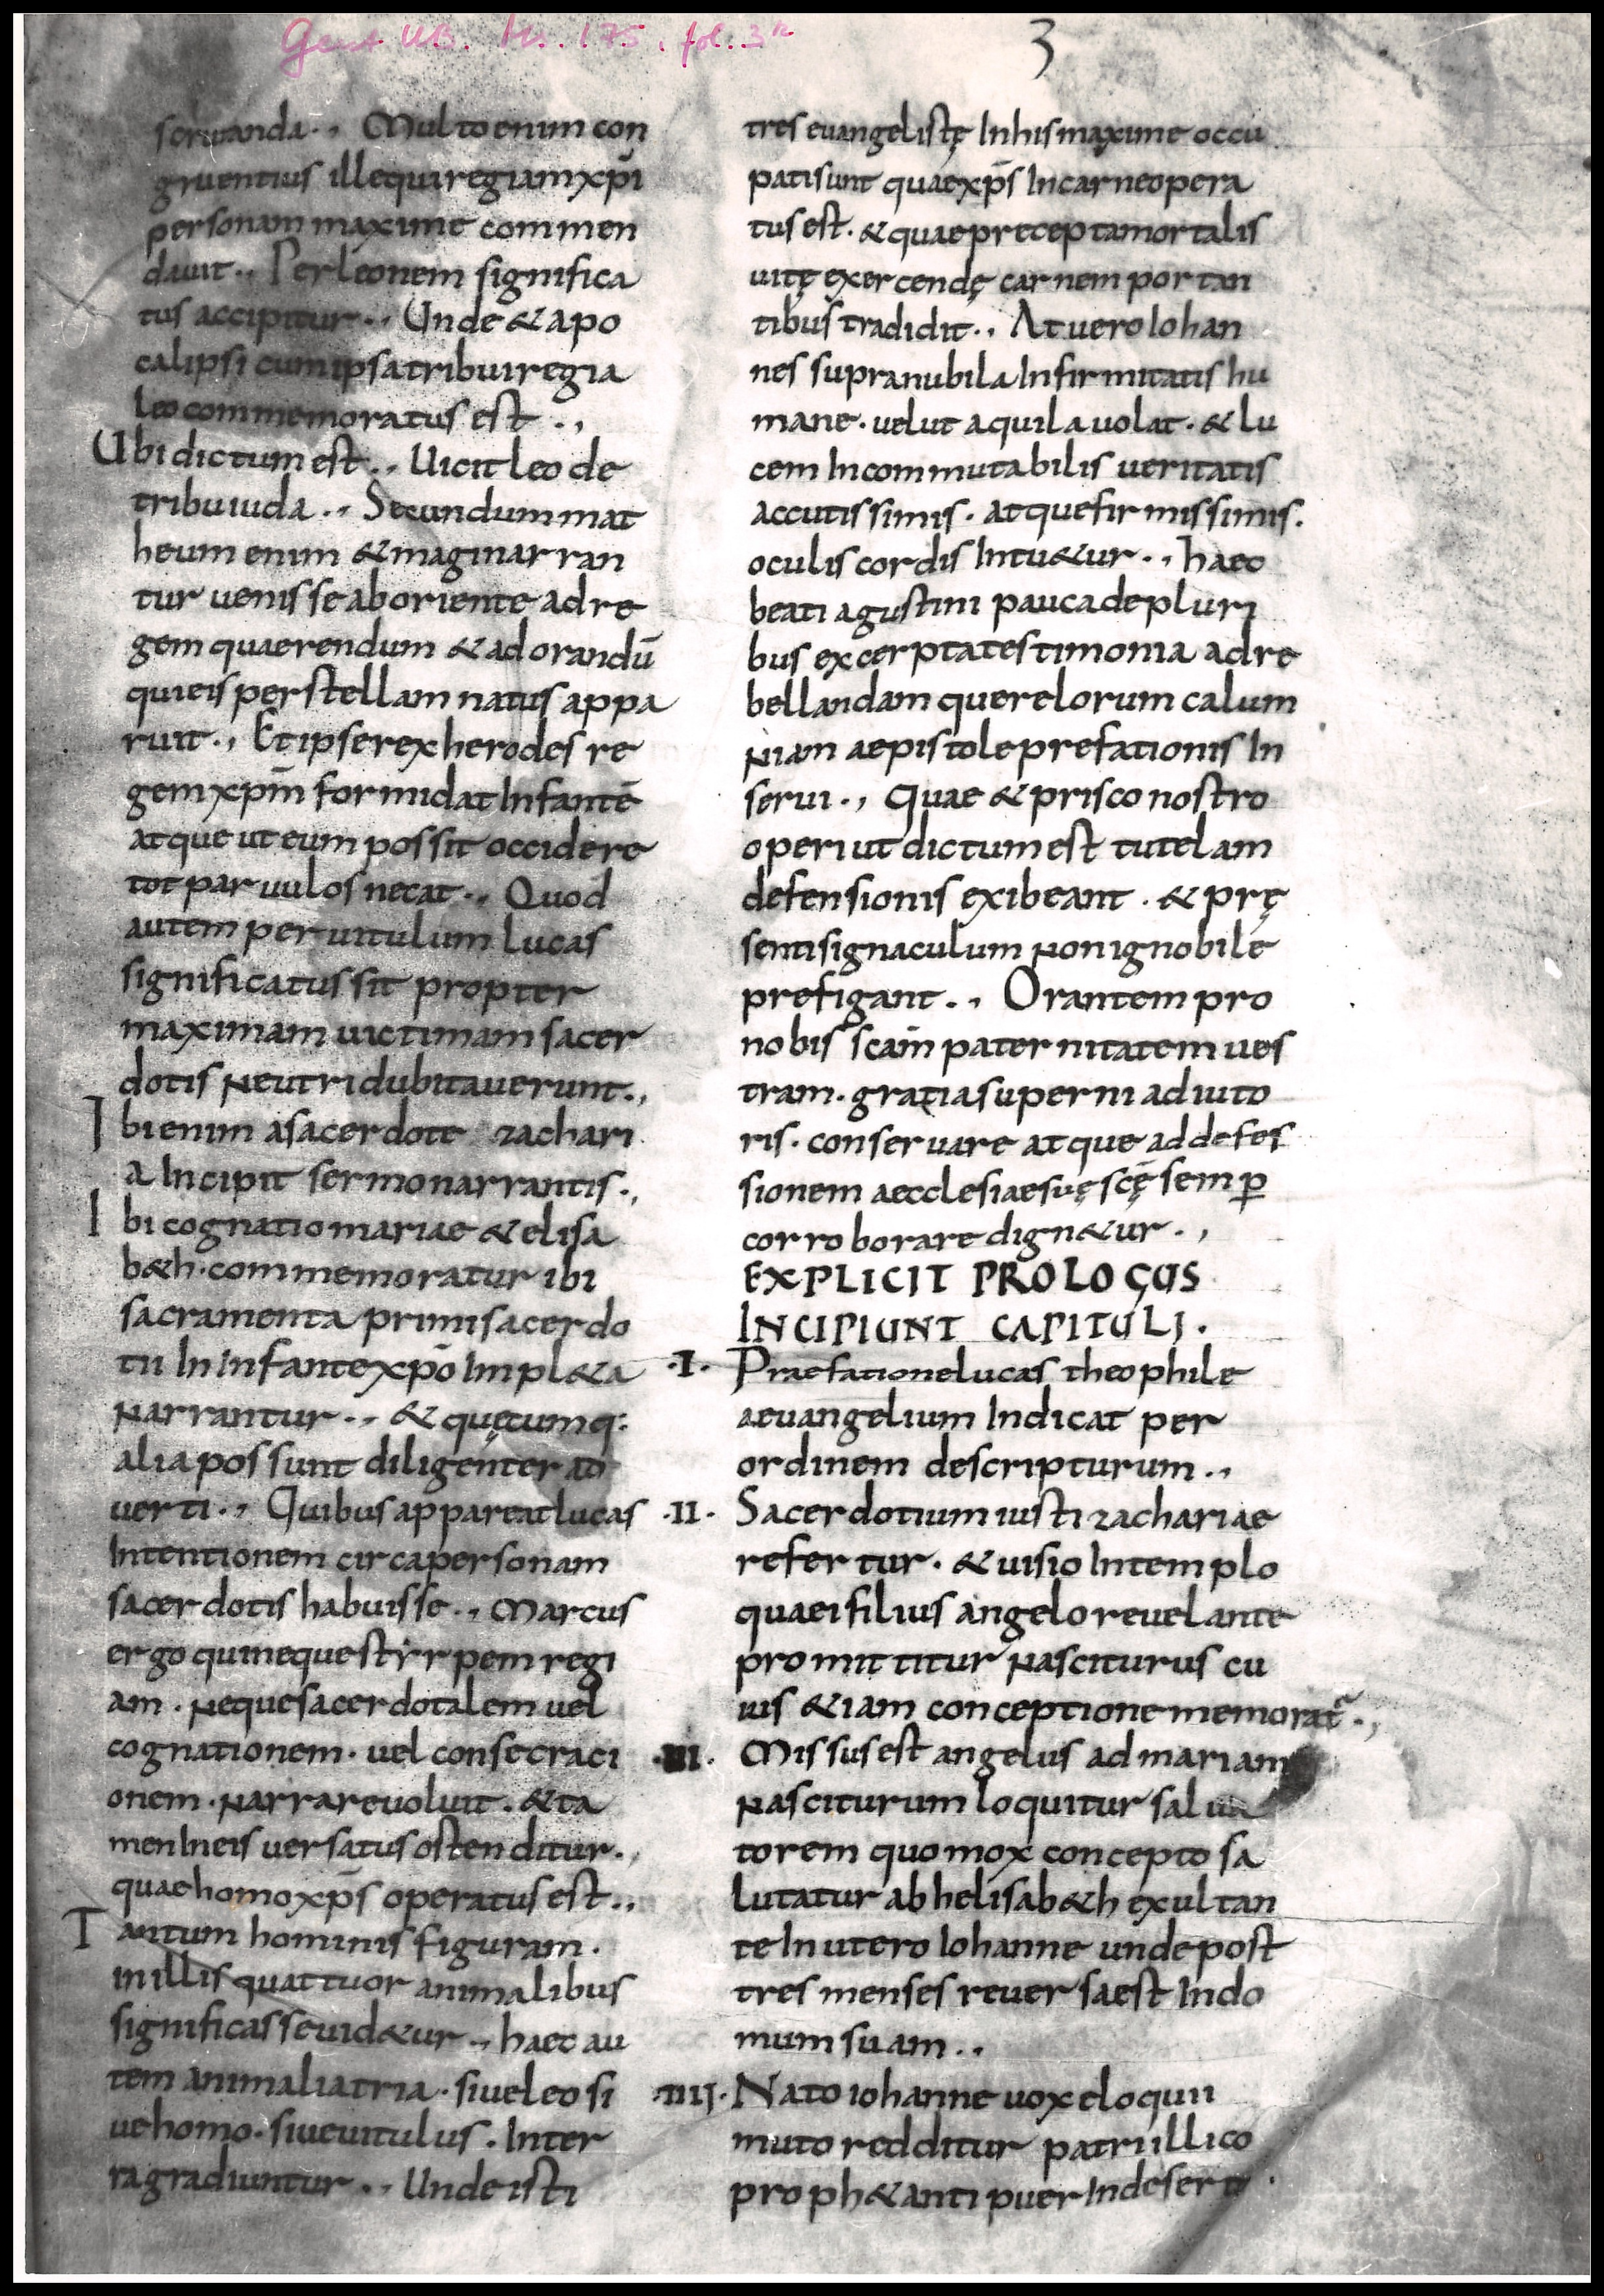 Gent UB. Hs. 175, fol. 3r
3
seruanda., Multo enim con
gruentius ille qui regiam xp̄i
personam maxime commen
dauit., Per leonem significa
tus accipitur., Unde & apo
calipsi cum ipsa tribui regia
leo commemoratus est .,
Ubi dictum est., Uicit leo de
tribu iuda., Secundum mat
heum enim & magi narran
tur uenisse ab oriente ad re
gem quaerendum & adorandū
qui eis per stellam natus appa
ruit., Et ipse rex herodes re
gem xpm̄ formidat Infantē
atque ut eum possit occidere
tot paruulos necat., Quod
autem per uitulum lucas
significatus sit propter
maximam uictimam sacer
dotis Neutri dubitauerunt.,
Ibi enim a sacerdote zachari
a Incipit sermo narrantis.,
Ibi cognatio mariae & elisa
b&h. commemoratur ibi
sacramenta primi sacerdo
tii In Infante xp̄o Impl&a
Narrantur., & quęcumq:
alia possunt diligenter ad
uerti., Quibus appareat lucas
Intentionem circa personam
sacerdotis habuisse., Marcus
ergo qui neque styrpem regi
am. Neque sacerdotalem uel
cognationem. uel consecraci
onem. Narrare uoluit. & ta
men In eis uersatus ostenditur.,
quae homo xp̄s operatus est.,
Tantum hominis figuram.
in illis quattuor animalibus
significasse uid&ur., haec au
tem animalia tria. siue leo si
ue homo. siue uitulus. Inter
ra gradiuntur., Unde isti
tres euangelistę In his maxime occu
pati sunt quae xp̄s In carne opera
tus est. & quae precepta mortalis
uitę exercendę carnem portan
tibus tradidit., At uero Iohan
nes supra nubila Infirmitatis hu
mane. uelut aquila uolat. & lu
cem Incommutabilis ueritatis
accutissimis. atque firmissimis.
oculis cordis Intu&ur., haec
beati agustini pauca de pluri
bus excerpta testimonia ad re
bellandam querelorum calum
Niam aepistole prefationis In
serui., Quae & prisco nostro
operi ut dictum est tutelam
defensionis exibeant. & prę
senti signaculum Non ignobile
prefigant., Orantem pro
nobis scām paternitatem ues
tram. gratia superni adiuto
ris. conseruare atque ad defes
sionem aecclesiae suę scę̄ semp̱
corroborare dign&ur.,
EXPLICIT PROLOGUS
INCIPIUNT CAPITULI.
.I. Praefatione lucas theophile
aeuangelium Indicat per
ordinem descripturum.,
.II. Sacerdotium iusti zachariae
refertur. & uisio In templo
quae i filius angelo reuelante
promittitur Nasciturus cu
ius &iam conceptione memorat̃.,
.III. Missus est angelus ad mariam
Nasciturum loquitur salua
torem quo mox concepto sa
lutatur ab helisab&h exultan
te In utero Iohanne unde post
tres menses reuersa est In do
mum suam.,
.IIIJ. Nato iohanne uox eloquii
muto redditur patri illico
proph&anti puer In deserto.